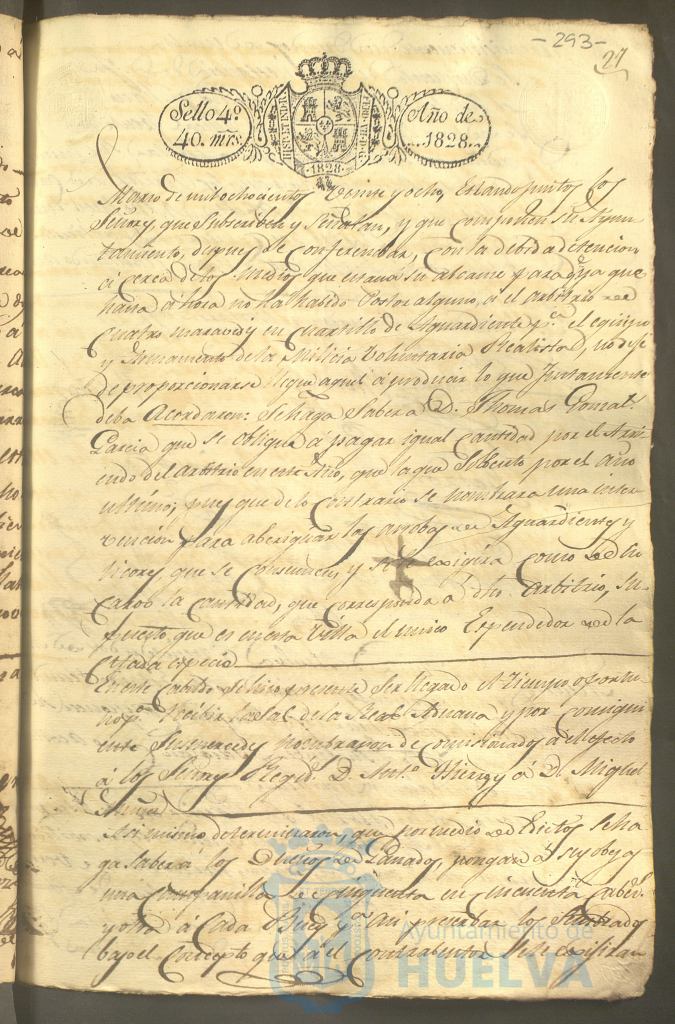 -293-
27
Sello 4º
40. mrs.
HISPANIAR.
1828
Año de
1828.
Marzo de mil ochocientos veinte y ocho, estando juntos los
Señores, que subscriben y señalan, y que componen su Ayun
tamiento, despues de conferenciar, con la debida detencion
a cerca de los medios que estan a su alcance para que
hasta ahora no ha habido Postor alguno, a el arbitrio de
cuatro maravedis en cuartillo de Aguardiente pª el equipo
y Armamento de la Milicia Voluntaria Realista,
de proporcionarse llegue aquel a producir lo que justamente
deba Acordaron: Se haga saber a D. Thomas Gonzal.
Garcia que se obligue a pagar igual cantidad por el Arri
endo del arbitrio en este Año, que la que satisfizo por el año
ultimo; pues que de lo contrario se nombrara una inter
vencion para aberiguar las arrobas de Aguardiente y
licores, que se consumen, y se le exigira como
la cantidad, que corresponda a dho. arbitrio, su
puesto que es en esta Villa el unico Expendedor de la
citada especie
En este Cabildo se hizo presente ser llegado el tiempo oportu
no pª recibir la Sal de la Real Aduana y por consigui
ente Sus mercedes nombraron de comisionados a el efecto
a los Señores Regid. D. Antº Hierro y a D. Miguel
Asi mismo determinaron, que por medio de Edictos se ha
ga saber a los Dueños de Ganados, pongan a sus obejas
una campanilla de cinquenta en cincuenta cabes.
y otra a cada Buey pª asi precaber los
bajo el concepto que a el contrabentor se le exijiran
Ayuntamiento de
HUELVA